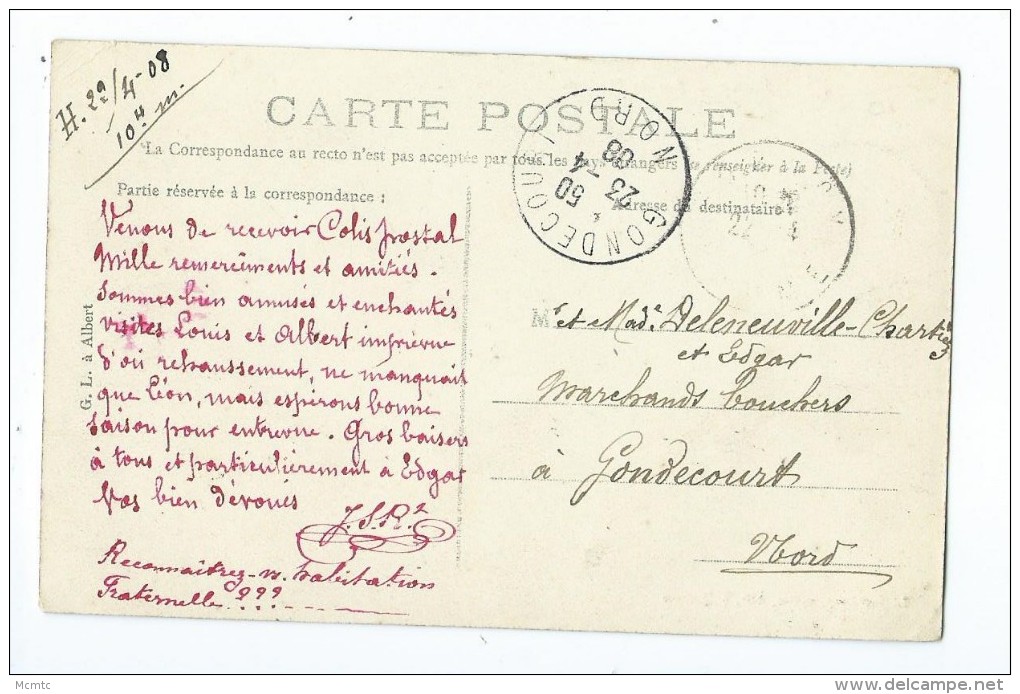 H. 22/4-08
10H m.
CARTE POSTALE
La Correspondance au recto n'est pas acceptée par tous les pays étrangers (se renseigner à la Poste)
Partie réservée à la correspondance :
Adresse du destinataire :
GONDECOURT
NORD
50
23 -4
08
Venons de recevoir Colis postal
Mille remerciments et amitiés.
Sommes bien amusés et enchantés
visites Louis et Albert imprévue
d'où rehaussement, ne manquait
que Léon, mais espérons bonne
saison pour entrevue. Gros baisers
à tous et particulièrement à Edgar
Vos bien dévoués
J.S.R.²
Reconnaîtrez-vs. habitation
Fraternelle ???
M et Made. Deleneuville-Chartiez
et Edgar
Marchands bouchers
à Gondecourt
Nord
G. L. à Albert
Mcmtc
delcampe.net